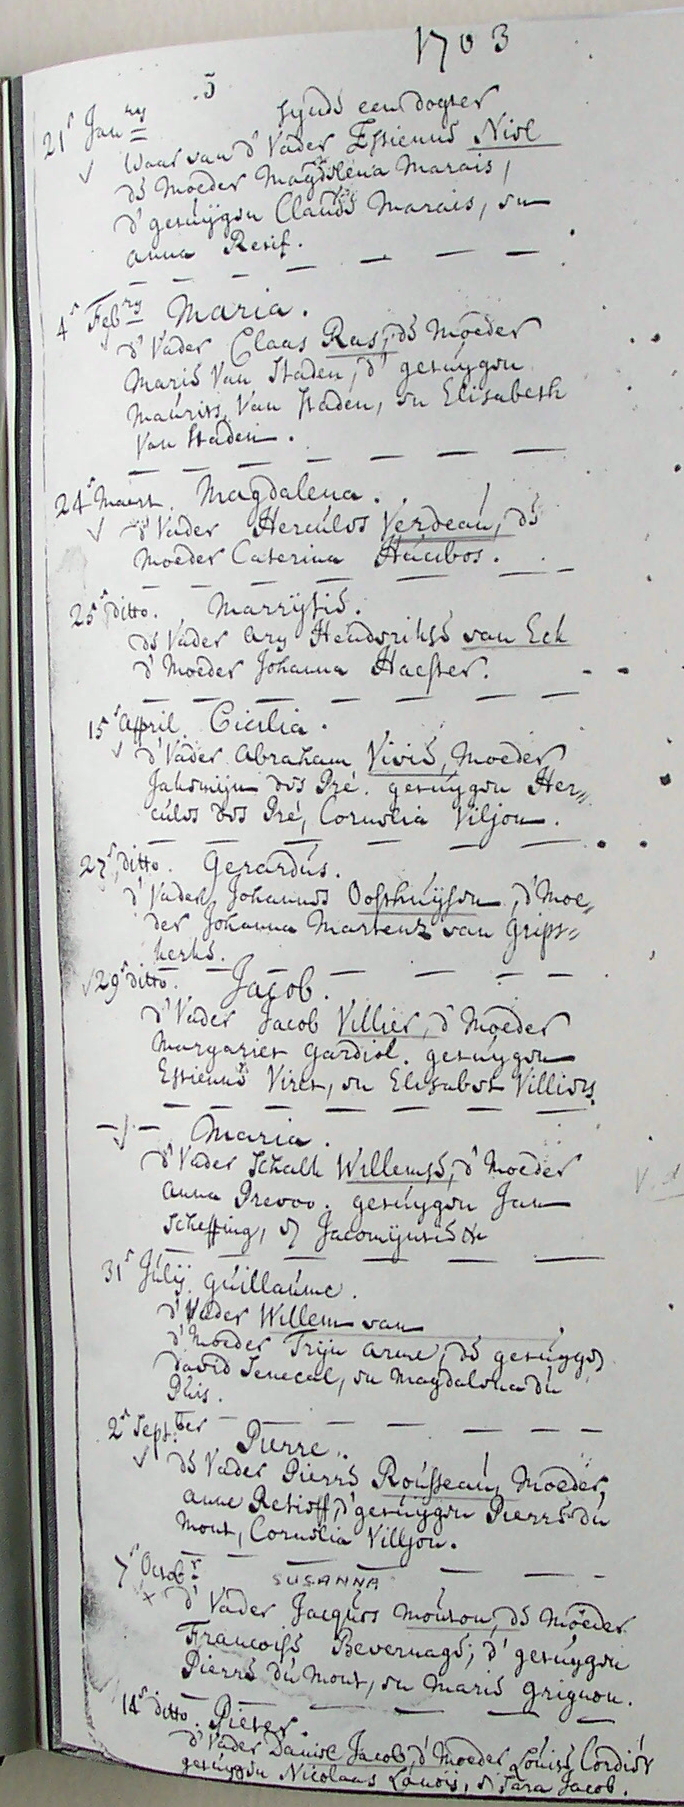 1703
5
21e Janry synde een dogter
waar van d' Vader Estienne Niel
de Moeder Magdalena Marais,
d' getúÿgen Claude Marais, en
anna Resif.
4e Febry Maria.
d' Vader Claas Ras, de Moeder
Maria Van Staden, d' getúÿgen
Maúrits Van Staden, en Elisabeth
Van Staden.
24e Maert. Magdalena.
d' Vader Hercúles Verdeaú, de
Moeder Caterina Húibos.
25e ditto. Marrÿtie.
de Vader Ary Hendrikse van Eck
d' Moeder Johanna Haester.
15e April. Cicilia.
d' Vader Abraham Vivie, Moeder
Jakomijn des Pré. getúÿgen Her„
cúles des Pré, Cornelia Viljon.
27e ditto. Gerardús.
d' Vader Johannes Oosthúÿsen, d' Moe„
der Johanna Martenz van Grips„
kerke.
29e ditto. Jacob.
d' Vader Jacob Villier, d' Moeder
Margariet Gardiol. getúÿgen
Estienne Viret, en Elisabet Villiers.
Maria.
d' Vader Schalk Willemse, d' Moeder
Anna Prevoo. getúÿgen Jan
Scheffing, &
31e Júlÿ. Gúillaúme.
d' Vader Willem van
d' Moeder Trijn Arme, de getúÿg:
David Senecal, en Magdalena dú
Púis.
2e Septber Pierre.
de Vader Pierre Roússeaú, Moeder,
Anne Retioff, d' getúÿgen Pierre dú
Mont, Cornelia Villjon.
7e Octobr SUSANNA
d' Vader Jacques Moúton, de Moeder
Francoise Bevernage; d' getúÿgen
Pierre dú Mont, en Marie Grignon.
14e ditto. Pieter.
d' Vader Daniel Jacob, d' Moeder Loúise Cordiér
getúÿgen Nicolaas Lanoÿ, & Sara Jacob.